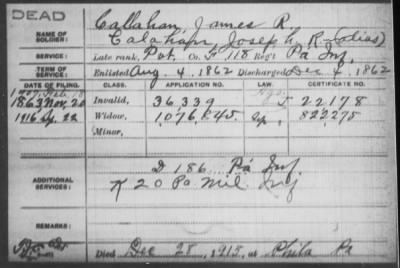 DEAD
NAME OF SOLDIER: Callahan, James R.
Calahan, Joseph R. (alias)
SERVICE: Late rank, Pvt. Co. F, 118 Reg't Pa Inf.
TERM OF SERVICE: Enlisted Aug. 4, 1862 Discharged Dec 4, 1862
DATE OF FILING. CLASS. APPLICATION NO. LAW. CERTIFICATE NO.
1863 Nov. 20 Invalid, 36,339 22178
1916 22 Widow, 1076845 822278
Minor,
ADDITIONAL SERVICES: D 186 Pa Inf.
K 20 Pa Mil. Inf
REMARKS:
Died Dec 28, 1915, at Phila Pa